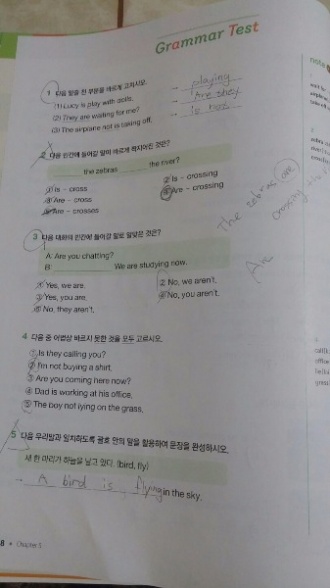 Grammar Test
note
1 다음 밑줄 친 부분을 바르게 고치시오.
(1) Lucy is play with dolls. → playing
(2) They are waiting for me? → Are they
(3) The airplane not is taking off. → is not
2 다음 빈칸에 들어갈 말이 바르게 짝지어진 것은?
the zebras the river?
① Is - cross ② Is - crossing
③ Are - cross ④ Are - crossing
⑤ Are - crosses
The zebras are
crossing the
3 다음 대화의 빈칸에 들어갈 말로 알맞은 것은?
A: Are you chatting?
B: We are studying now.
① Yes, we are. ② No, we aren't.
③ Yes, you are. ④ No, you aren't.
⑤ No, they aren't.
4 다음 중 어법상 바르지 못한 것을 모두 고르시오.
① Is they calling you?
② I'm not buying a shirt.
③ Are you coming here now?
④ Dad is working at his office.
⑤ The boy not lying on the grass.
5 다음 우리말과 일치하도록 괄호 안의 말을 활용하여 문장을 완성하시오.
새 한 마리가 하늘을 날고 있다. (bird, fly)
→ A bird is flying in the sky.
8 • Chapter 5